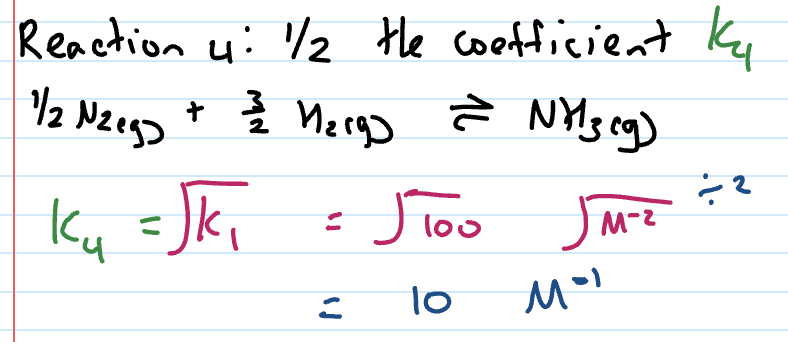 Reaction 4: 1/2 the coefficient K₄
1/2 N₂(g) + 3/2 H₂(g) ⇌ NH₃(g)
÷2
K₄ = √K₁ = √100 √M⁻²
= 10 M⁻¹